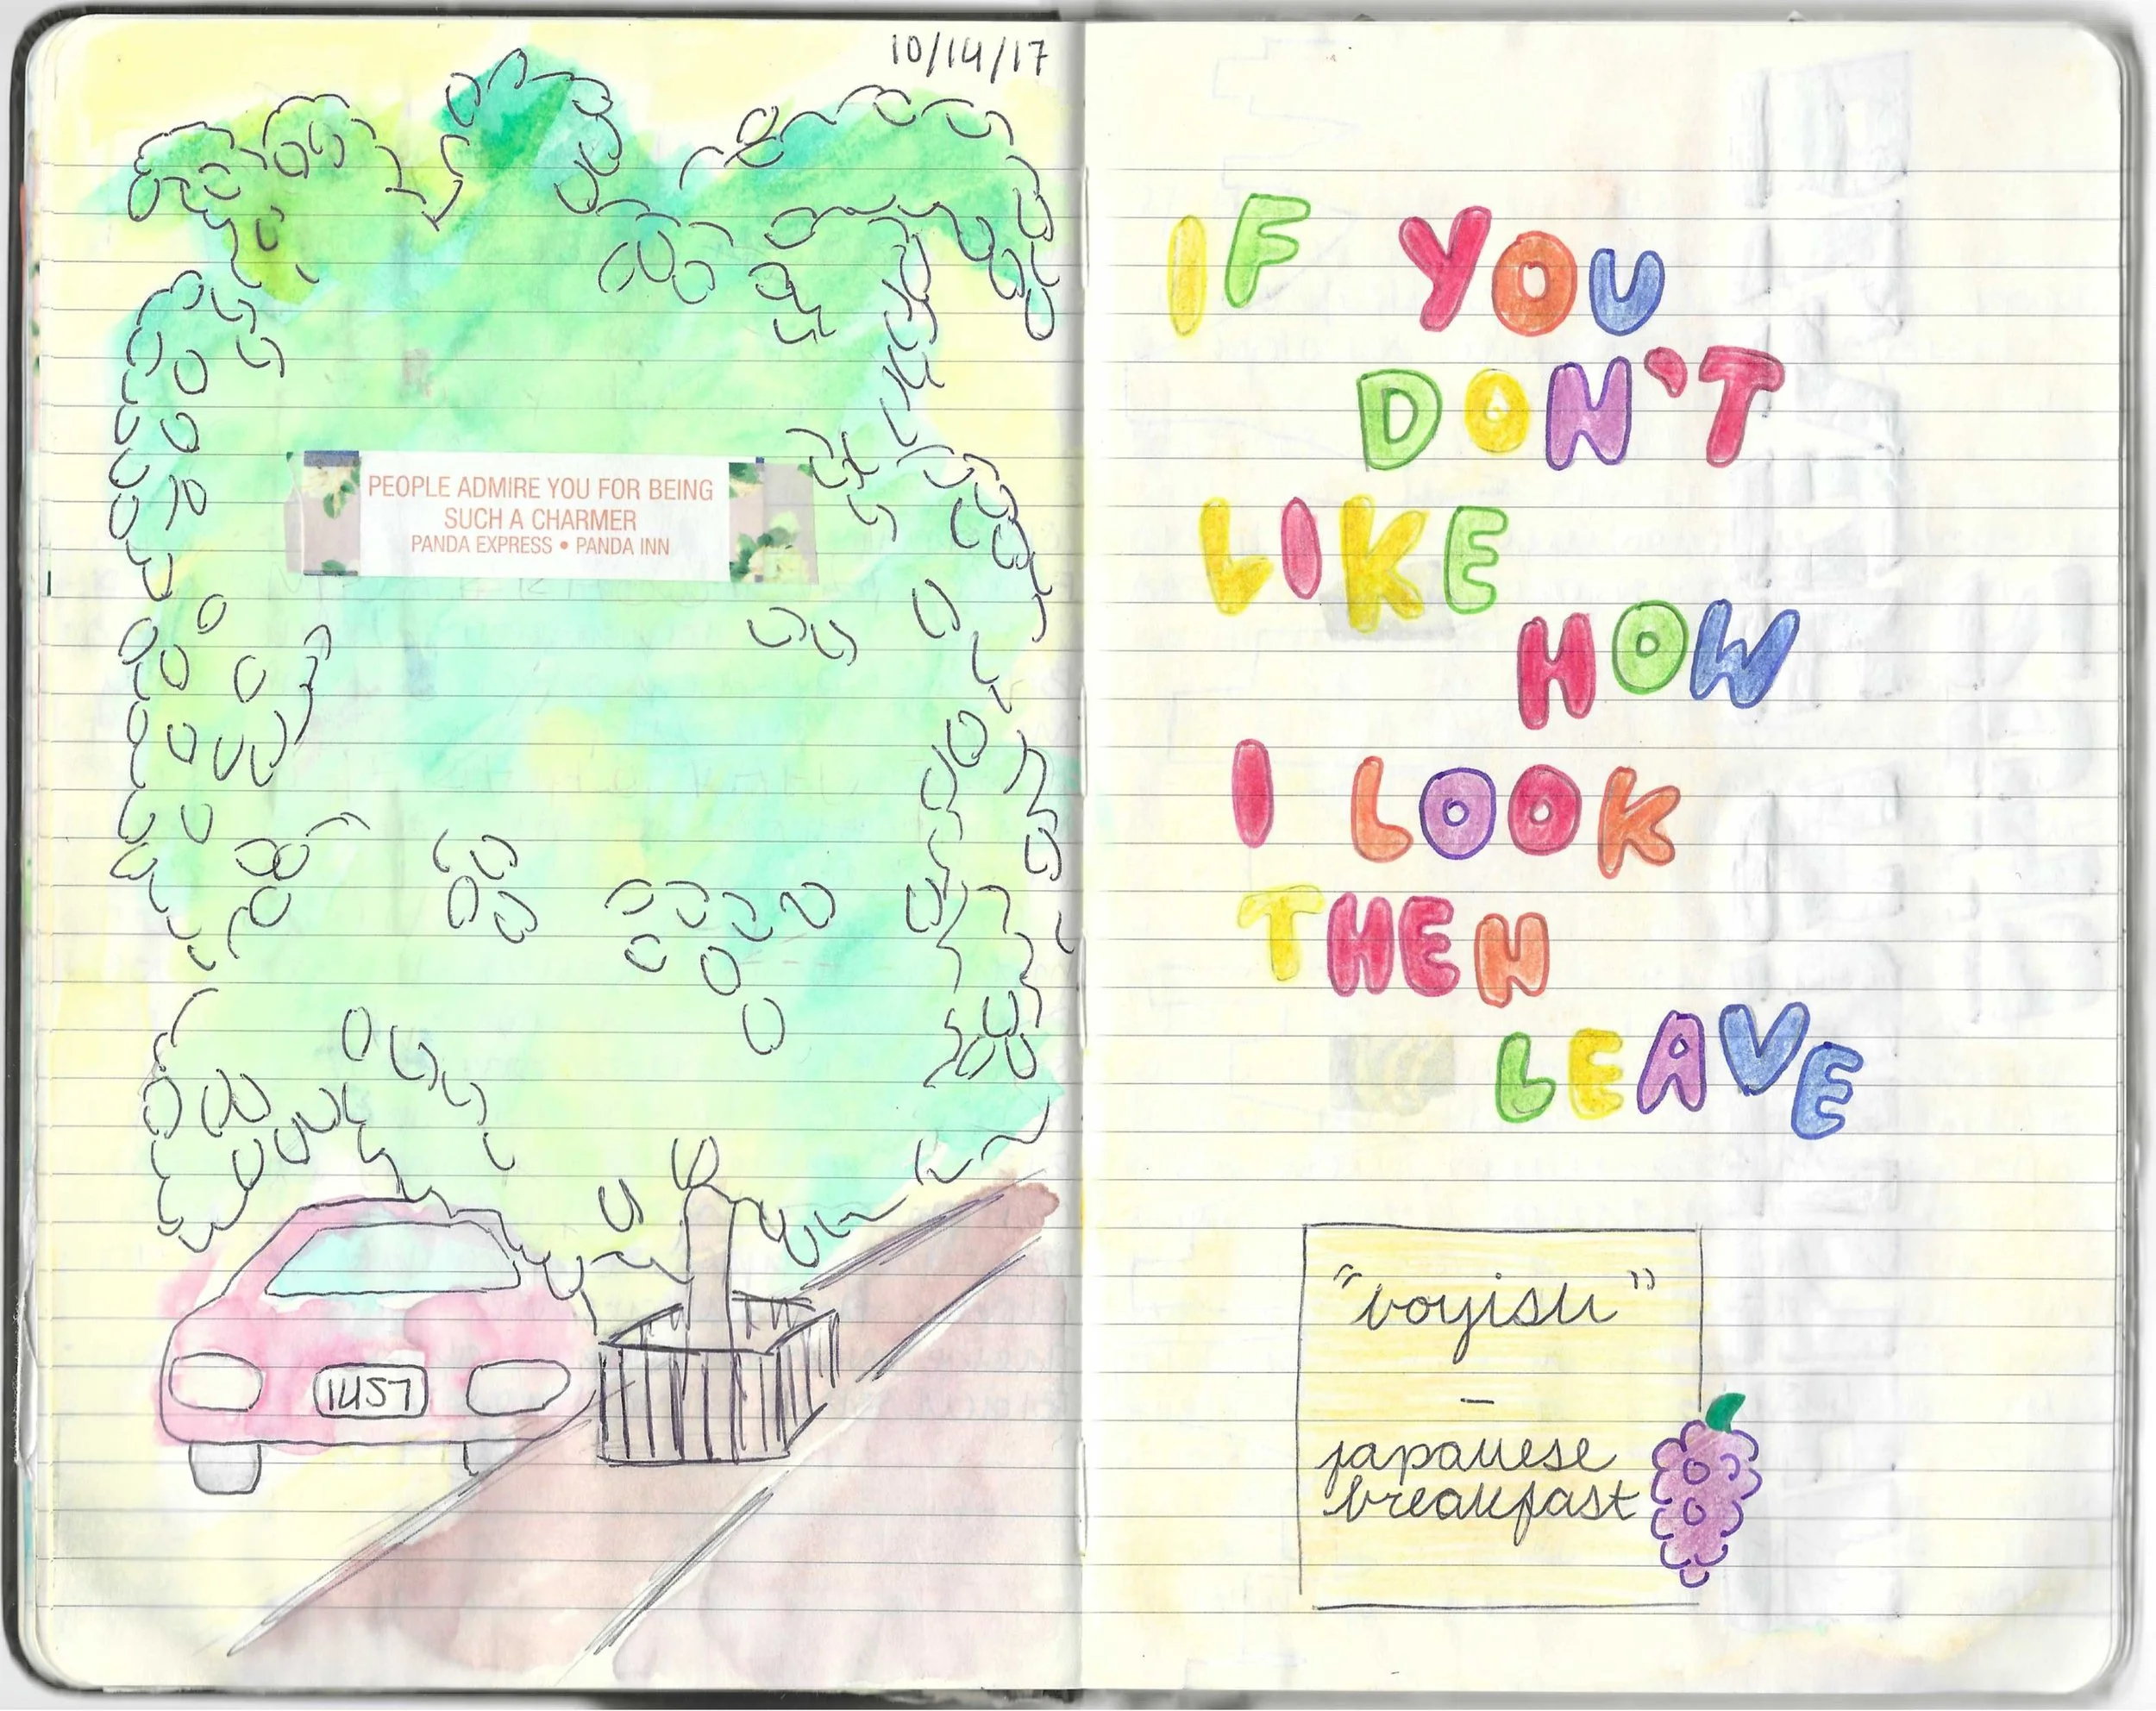 10/14/17
PEOPLE ADMIRE YOU FOR BEING
SUCH A CHARMER
PANDA EXPRESS • PANDA INN
1457
IF YOU
DON'T
LIKE
HOW
I LOOK
THEN
LEAVE
"boyish"
–
japanese
breakfast